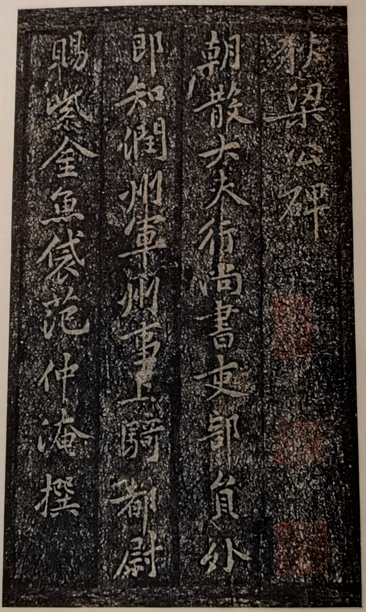 狄梁公碑
朝散大夫行尚書吏部員外
郎知潤州軍州事上騎都尉
賜紫金魚袋范仲淹撰